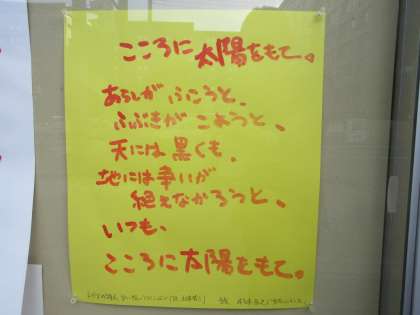 こころに太陽をもて。
あらしがふこうと、
ふぶきがこようと、
天には黒くも、
地には争いが
絶えなかろうと、
いつも、
こころに太陽をもて。